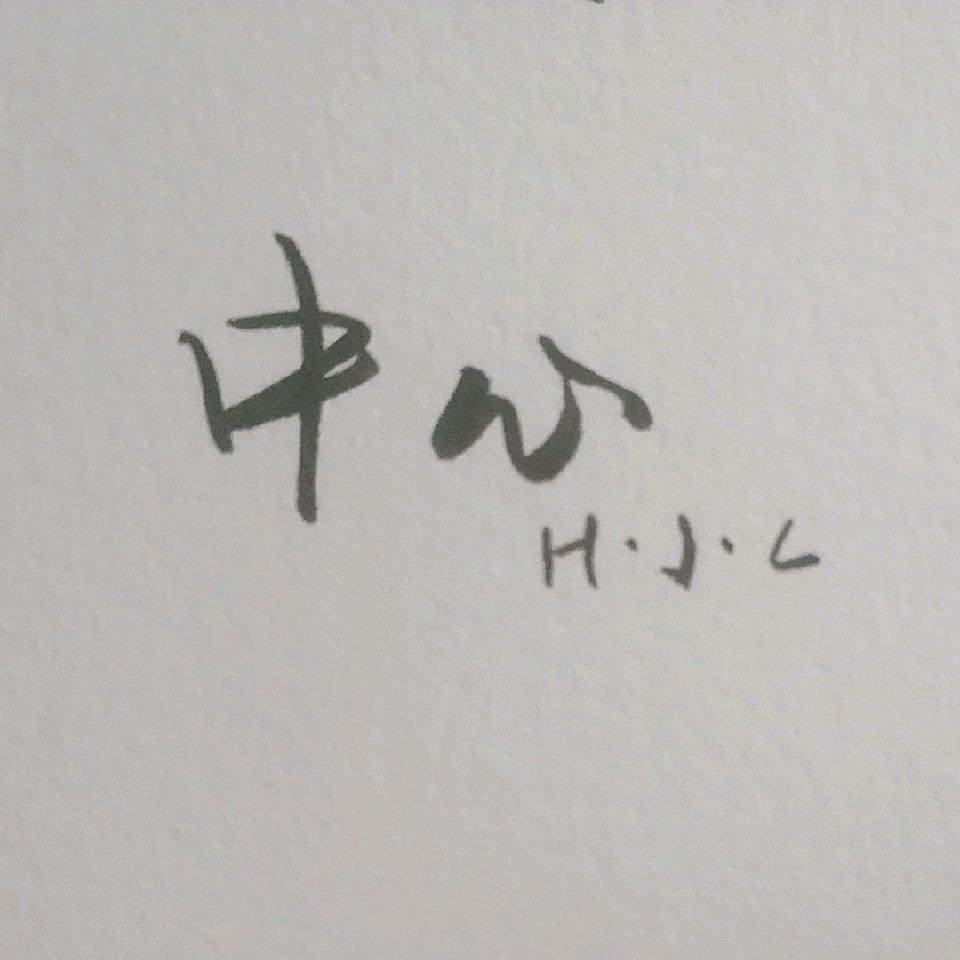 中心
H.J.C